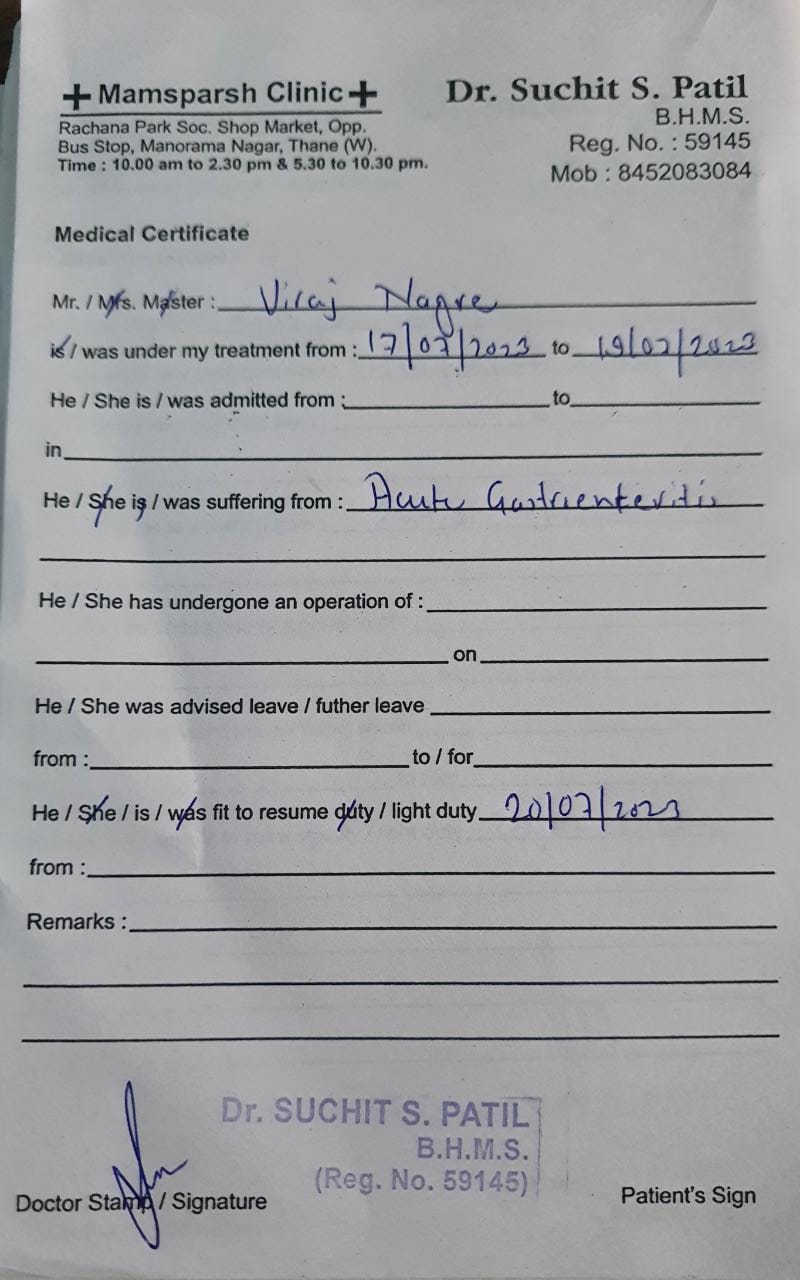 + Mamsparsh Clinic +
Rachana Park Soc. Shop Market, Opp.
Bus Stop, Manorama Nagar, Thane (W).
Time : 10.00 am to 2.30 pm & 5.30 to 10.30 pm.
Dr. Suchit S. Patil
B.H.M.S.
Reg. No. : 59145
Mob : 8452083084
Medical Certificate
Mr. / Mrs. Master : Viraj Nagre
is / was under my treatment from : 17/07/2023 to 19/07/2023
He / She is / was admitted from : to
in
He / She is / was suffering from : Acute Gastrienteritis
He / She has undergone an operation of :
on
He / She was advised leave / futher leave
from : to / for
He / She / is / was fit to resume duty / light duty 20/07/2023
from :
Remarks :
Dr. SUCHIT S. PATIL
B.H.M.S.
(Reg. No. 59145)
Doctor Stamp / Signature Patient's Sign